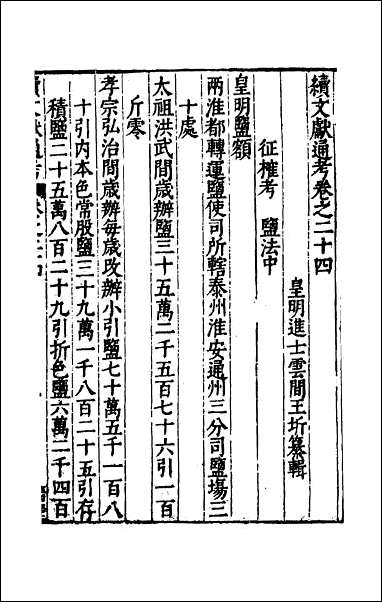 續文獻通考卷之二十四
皇明進士雲間王圻纂輯
征榷考 鹽法中
皇明鹽額
兩淮都轉運鹽使司所轄泰州淮安通州三分司鹽場三
十處
太祖洪武間歲辦鹽三十五萬二千五百七十六引一百
斤零
孝宗弘治間歲辦每歲改辦小引鹽七十萬五千一百八
十引内本色常股鹽三十九萬一千八百二十五引存
積鹽二十五萬八百二十九引折色鹽六萬二千四百